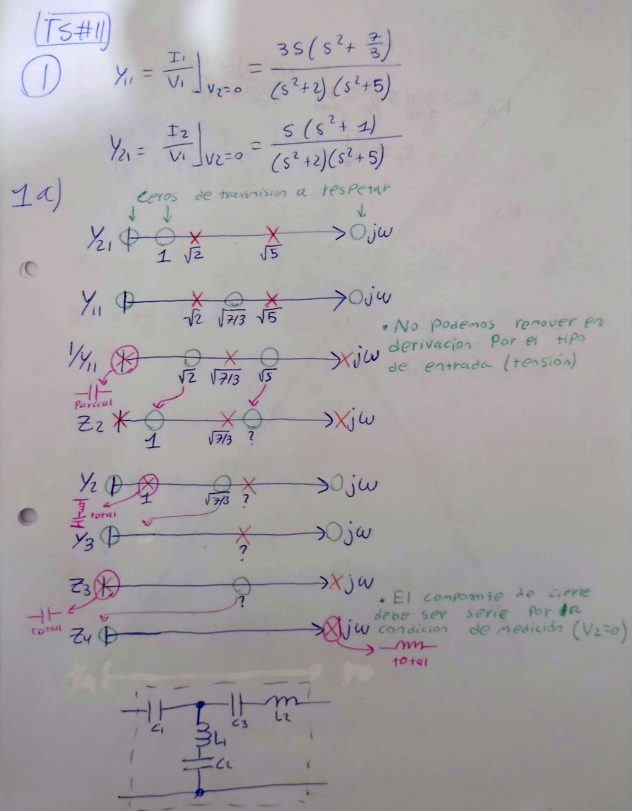 TS#11
1 Y11 = I1/V1]V2=0 = 3S(S²+ 7/3) / (S²+2)(S²+5)
Y21 = I2/V1]V2=0 = S(S²+1) / (S²+2)(S²+5)
1a) Ceros de transmision a respetar
Y21 1 √2 √5 jω
Y11 √2 √7/3 √5 jω
• No podemos remover en
derivacion por el tipo
de entrada (tensión)
1/Y11 √2 √7/3 √5 jω
Parcial
Z2 1 √7/3 ? jω
Y2 1 √7/3 ? jω
total
Y3 ? jω
Z3 ? jω
total
• El componente de cierre
debe ser serie por la
condicion de medición (V2=0)
Z4 jω
total
C1 C3 L2
L1
C2